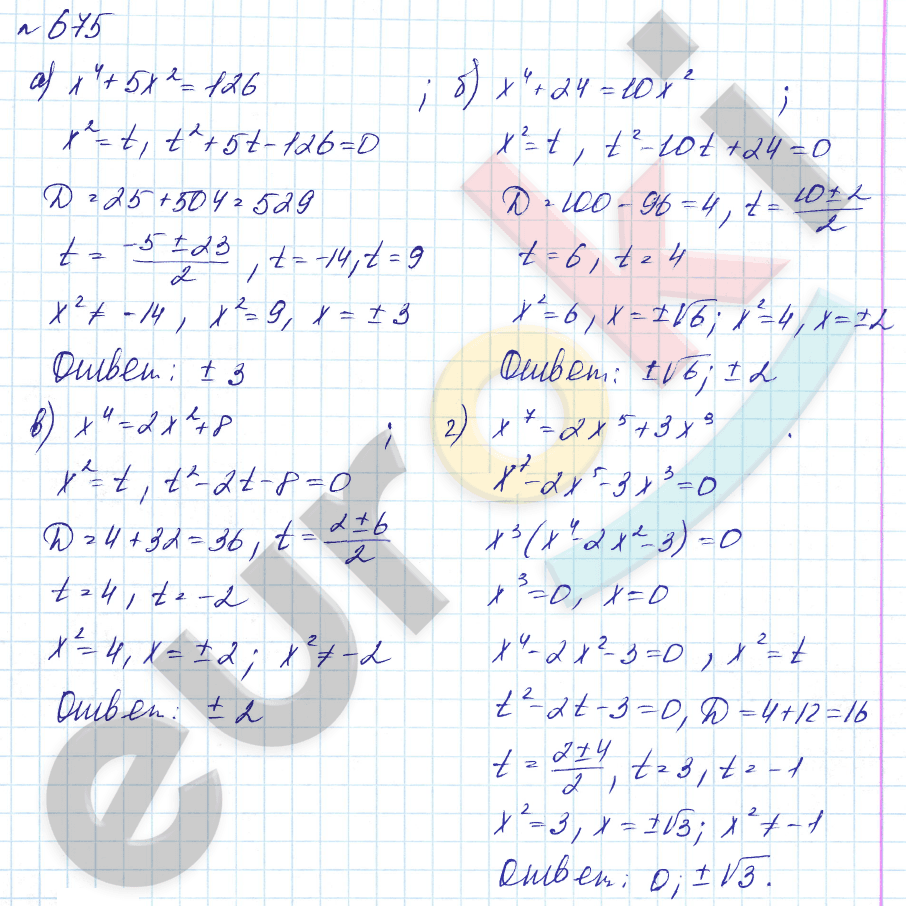 № 675
а) x⁴ + 5x² = 126 ;
x² = t, t² + 5t - 126 = 0
D = 25 + 504 = 529
t = (-5 ± 23)/2, t = -14, t = 9
x² ≠ -14, x² = 9, x = ± 3
Ответ: ± 3
б) x⁴ + 24 = 10x² ;
x² = t, t² - 10t + 24 = 0
D = 100 - 96 = 4, t = (10 ± 2)/2
t = 6, t = 4
x² = 6, x = ±√6; x² = 4, x = ±2
Ответ: ±√6; ± 2
в) x⁴ = 2x² + 8 ;
x² = t, t² - 2t - 8 = 0
D = 4 + 32 = 36, t = (2 ± 6)/2
t = 4, t = -2
x² = 4, x = ± 2; x² ≠ -2
Ответ: ± 2
г) x⁷ = 2x⁵ + 3x³ .
x⁷ - 2x⁵ - 3x³ = 0
x³(x⁴ - 2x² - 3) = 0
x³ = 0, x = 0
x⁴ - 2x² - 3 = 0, x² = t
t² - 2t - 3 = 0, D = 4 + 12 = 16
t = (2 ± 4)/2, t = 3, t = -1
x² = 3, x = ±√3; x² ≠ -1
Ответ: 0; ±√3.
euroki